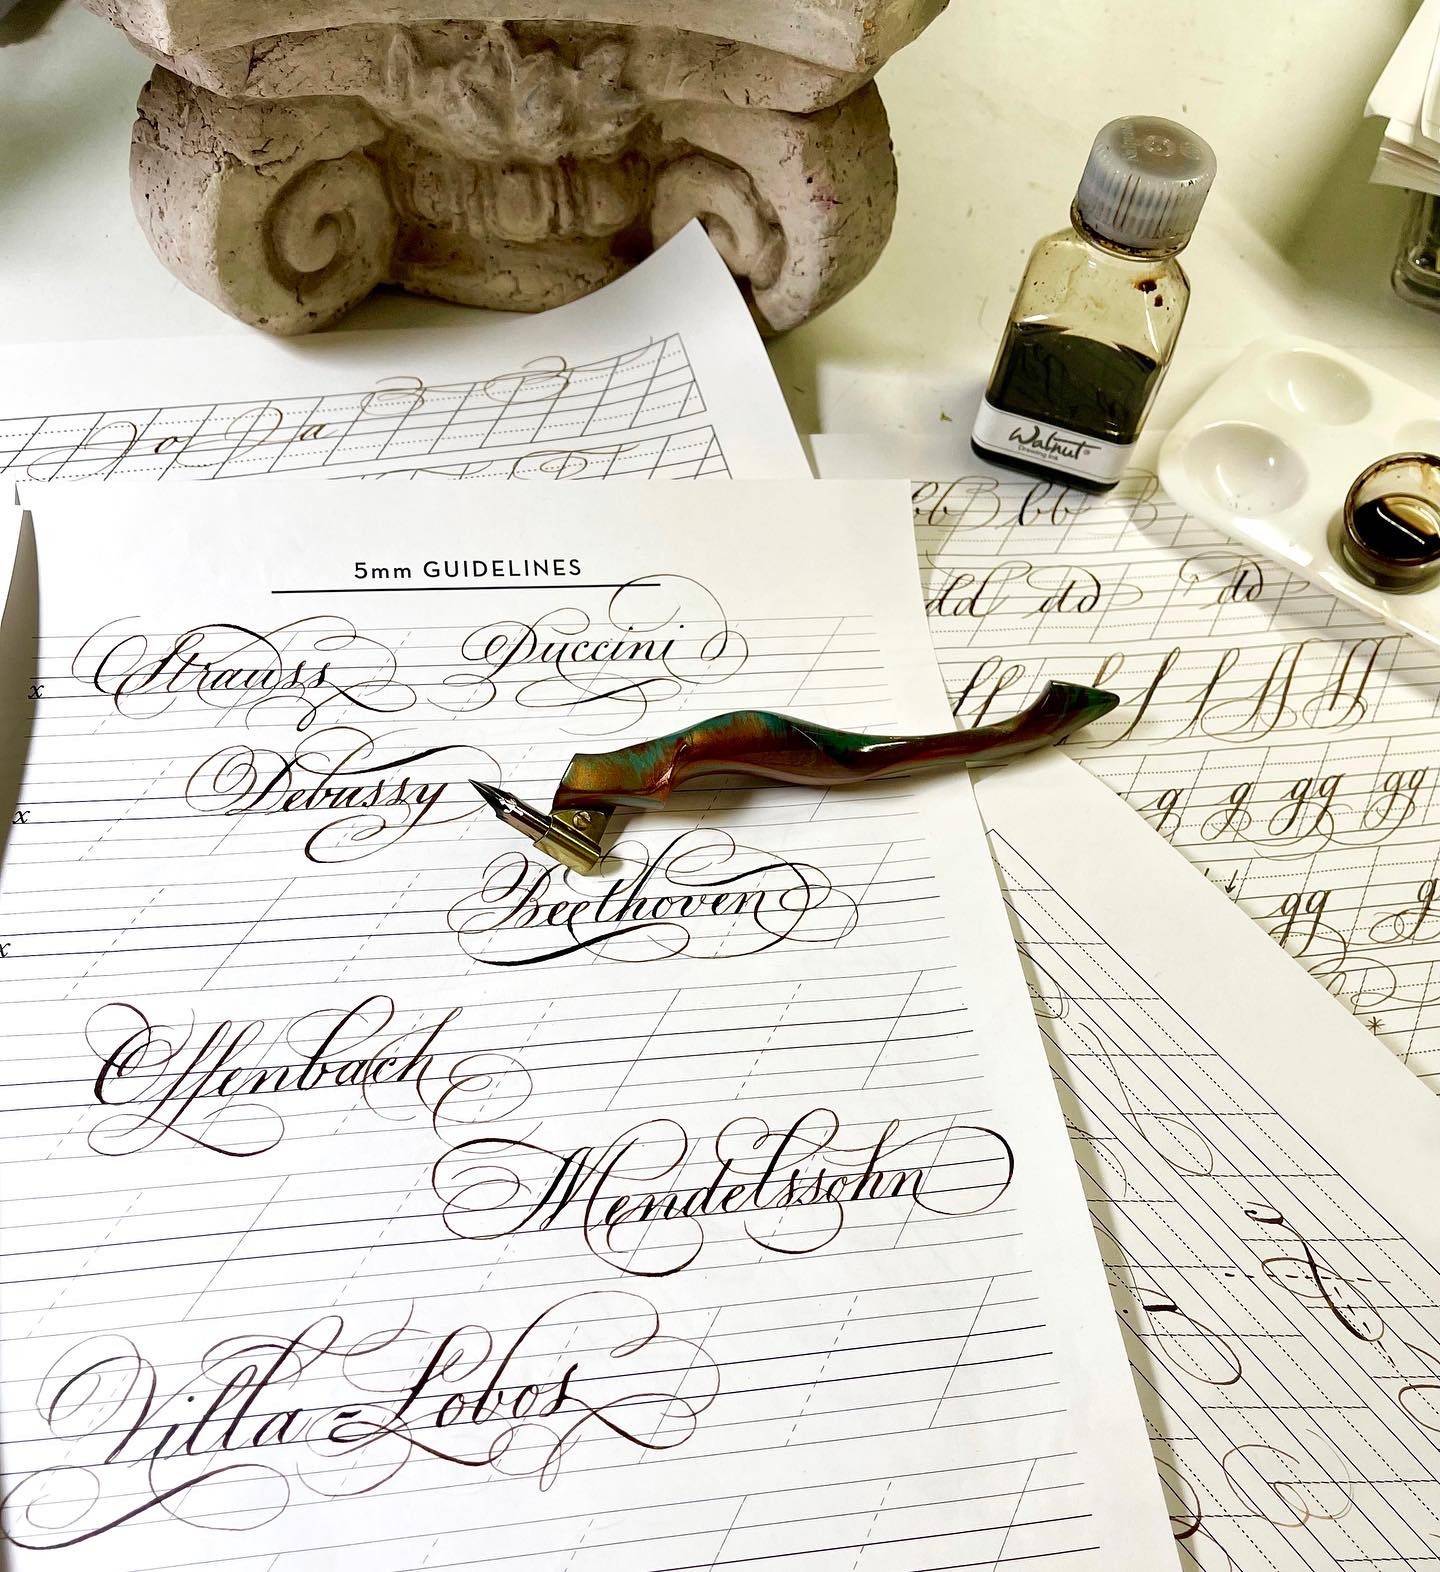 Walnut
Drawing Ink
bb bb
dd dd dd
5mm GUIDELINES
Strauss Puccini
x
Debussy
x
Beethoven
x
Offenbach
Mendelssohn
Villa=Lobos
g g gg gg
gg g